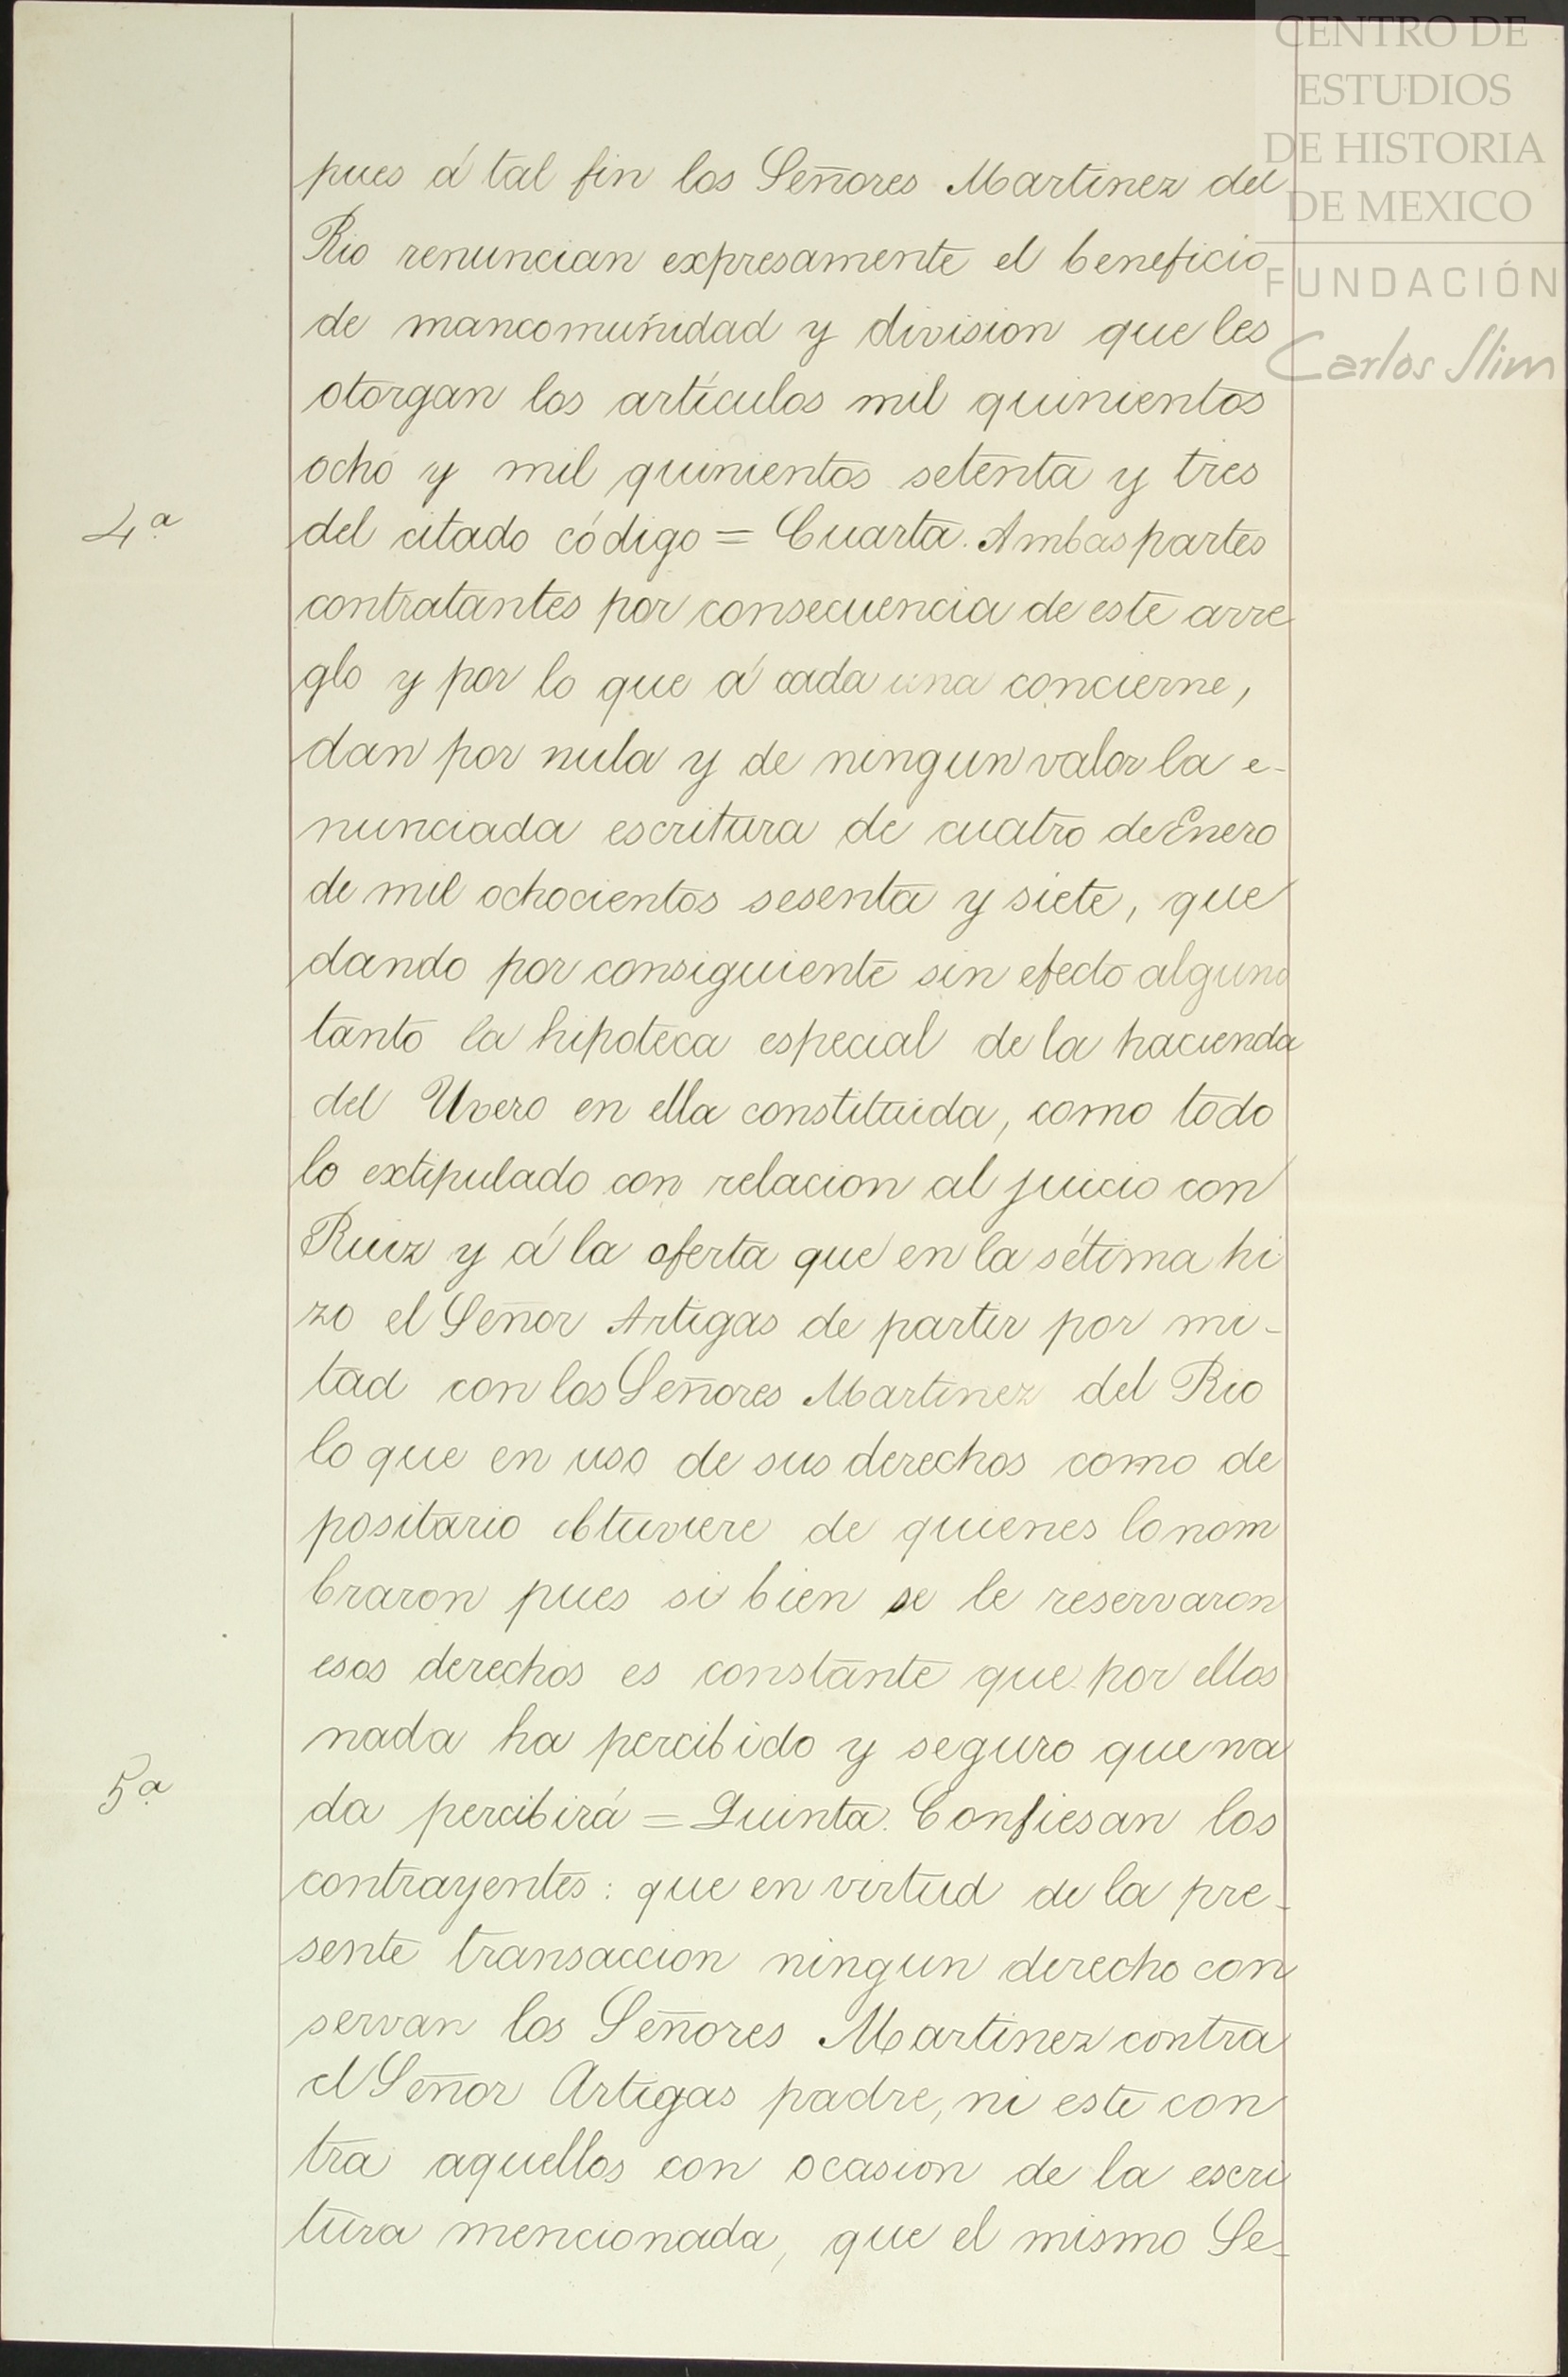 CENTRO DE
ESTUDIOS
DE HISTORIA
DE MEXICO
FUNDACIÓN
Carlos Slim
pues á tal fin los Señores Martinez del
Rio renuncian expresamente el beneficio
de mancomunidad y division que les
otorgan los artículos mil quinientos
ocho y mil quinientos setenta y tres
4ª
del citado código = Cuarta. Ambas partes
contratantes por consecuencia de este arre
glo y por lo que á cada una concierne,
dan por nula y de ningun valor la e-
nunciada escritura de cuatro de Enero
de mil ochocientos sesenta y siete, que
dando por consiguiente sin efecto alguno
tanto la hipoteca especial de la hacienda
del Uvero en ella constituida, como todo
lo extipulado con relacion al juicio con
Ruiz y á la oferta que en la sétima hi
zo el Señor Artigas de partir por mi-
tad con los Señores Martinez del Rio
lo que en uso de sus derechos como de
positario obtuviere de quienes lo nom
braron pues si bien se le reservaron
esos derechos es constante que por ellos
nada ha percibido y seguro que na
5ª
da percibirá = Quinta. Confiesan los
contrayentes: que en virtud de la pre-
sente transaccion ningun derecho con
servan los Señores Martinez contra
el Señor Artigas padre, ni este con
tra aquellos con ocasion de la escri
tura mencionada, que el mismo Se-